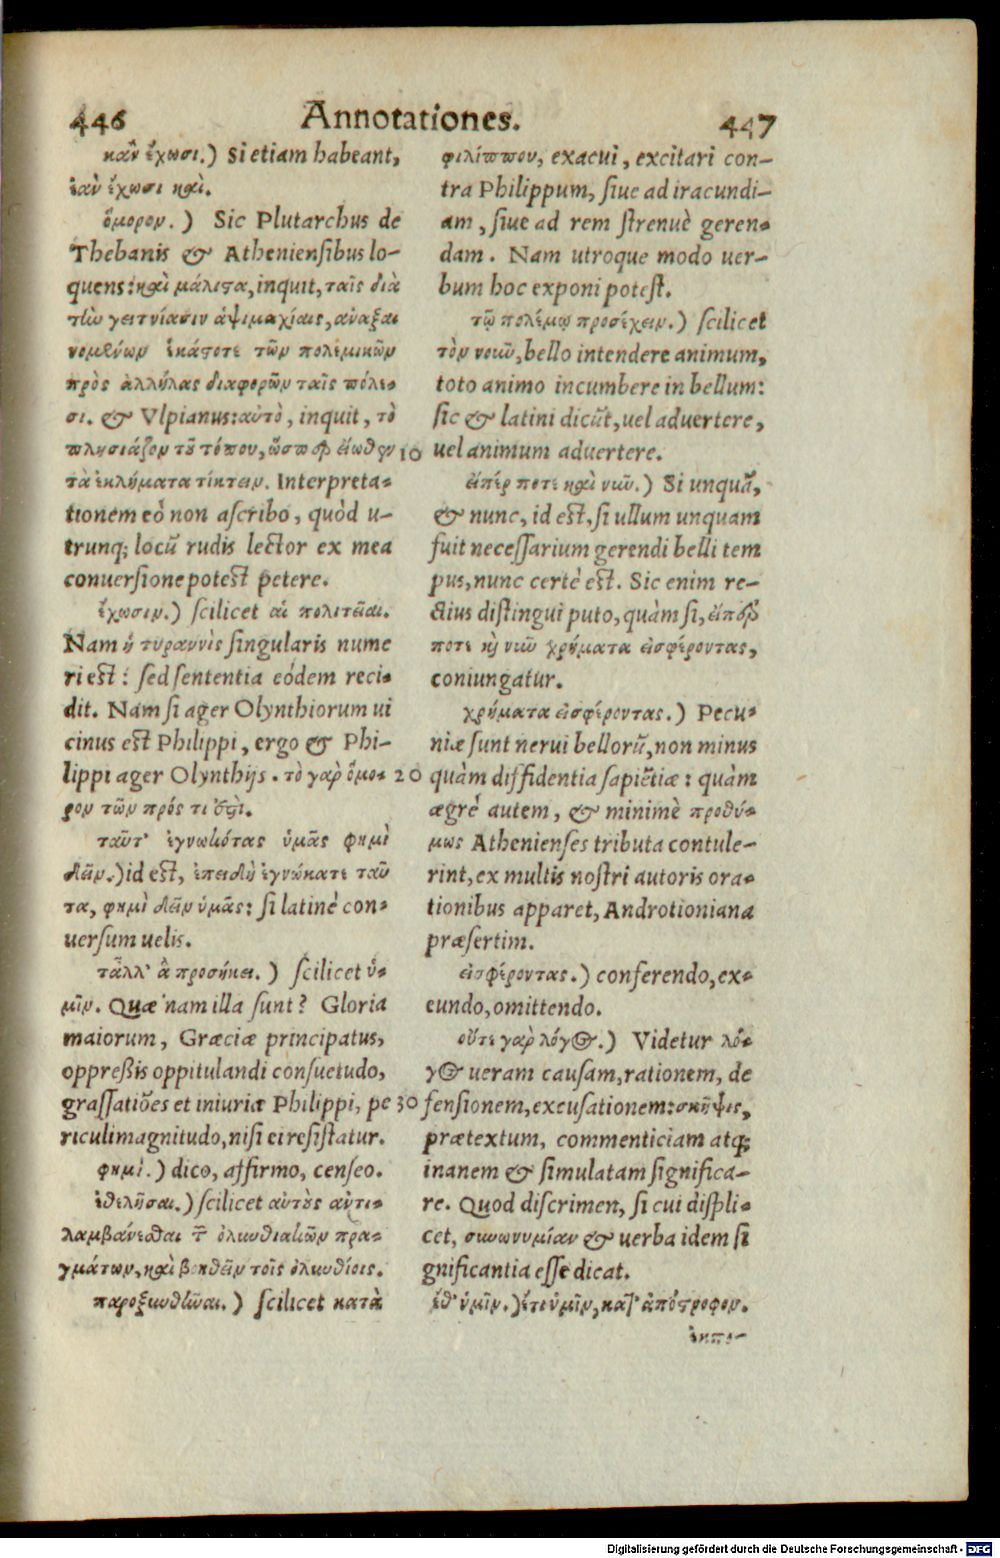 446 Annotationes. 447
κἂν ἔχωσι.) Si etiam habeant,
ἐὰν ἔχωσι καὶ.
ὅμορον.) Sic Plutarchus de
Thebanis & Atheniensibus lo-
quens: καὶ μάλιστα, inquit, ταῖς διὰ
τὴν γειτνίασιν ἁψιμαχίαις, ἀναξαι
νομένων ἑκάστοτε τῶν πολεμικῶν
πρὸς ἀλλήλας διαφορῶν ταῖς πόλε-
σι. & Vlpianus: αὐτὸ, inquit, τὸ
πλησιάζον τοῦ τόπου, ὥσπερ εἴωθεν 10
τὰ ἐκλήματα τίκτειν. Interpreta-
tionem eò non ascribo, quòd u-
trunq; locũ rudis lector ex mea
conuersione potest petere.
ἔχωσιν.) scilicet αἱ πολιτεῖαι.
Nam ἡ τυραννὶς singularis nume
ri est: sed sententia eódem reci-
dit. Nam si ager Olynthiorum ui
cinus est Philippi, ergo & Phi-
lippi ager Olynthijs. τὸ γὰρ ὅμο- 20
ρον τῶν πρός τι ἐστὶ.
ταῦτ' ἐγνωκότας ὑμᾶς φημὶ
δεῖν.) id est, ἐπειδὴ ἐγνώκατε ταῦ
τα, φημὶ δεῖν ὑμᾶς: si latinè con-
uersum uelis.
τἆλλ' ἃ προσήκει.) scilicet ὑ-
μῖν. Quæ nam illa sunt? Gloria
maiorum, Græciæ principatus,
oppreßis oppitulandi consuetudo,
grassatiões et iniuriæ Philippi, pe 30
riculi magnitudo, nisi ei resistatur.
φημὶ.) dico, affirmo, censeo.
ἐθελῆσαι.) scilicet αὐτοὺς ἀντι-
λαμβάνεσθαι τῶν ὀλυνθιακῶν πρα-
γμάτων, καὶ βοηθεῖν τοῖς ὀλυνθίοις.
παροξυνθῆναι.) scilicet κατὰ
φιλίππου, exacui, excitari con-
tra Philippum, siue ad iracundi-
am, siue ad rem strenuè geren-
dam. Nam utroque modo uer-
bum hoc exponi potest.
τῷ πολέμῳ προσέχειν.) scilicet
τὸν νοῦν, bello intendere animum,
toto animo incumbere in bellum:
sic & latini dicũt, uel aduertere,
uel animum aduertere.
εἴπέρ ποτε καὶ νῦν.) Si unquã,
& nunc, id est, si ullum unquam
fuit necessarium gerendi belli tem
pus, nunc certè est. Sic enim re-
ctius distingui puto, quàm si, εἴπερ
ποτε καὶ νῦν χρήματα εἰσφέροντας,
coniungatur.
χρήματα εἰσφέροντας.) Pecu-
niæ sunt nerui bellorũ, non minus
quàm diffidentia sapiẽtiæ: quàm
ægrè autem, & minimè προθύ-
μως Athenienses tributa contule-
rint, ex multis nostri autoris ora-
tionibus apparet, Androtioniana
præsertim.
εἰσφέροντας.) conferendo, ex-
eundo, omittendo.
οὔτε γὰρ λόγος.) Videtur λό-
γος ueram causam, rationem, de
fensionem, excusationem: σκῆψις,
prætextum, commenticiam atq;
inanem & simulatam significa-
re. Quod discrimen, si cui displi-
cet, συνωνυμίαν & uerba idem si
gnificantia esse dicat.
ἔθ' ὑμῖν.) ἔτι ὑμῖν, κατ' ἀπόστροφον.
ἐκπε-
Digitalisierung gefördert durch die Deutsche Forschungsgemeinschaft - DFG